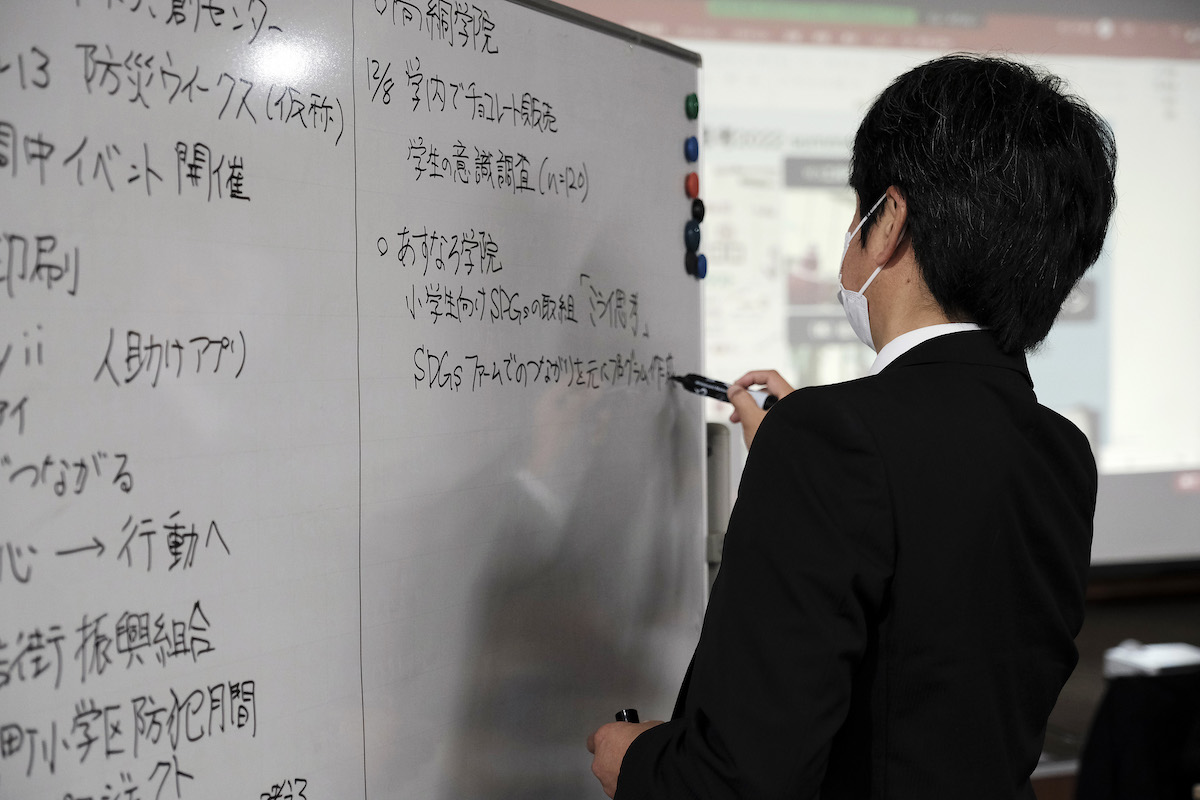 創センター
-13 防災ウイークス(仮称)
間中イベント開催
印刷
ii 人助けアプリ)
アイ
つながる
心→行動へ
街振興組合
町小学区防犯月間
ジェクト
○高綱学院
12/8 学内でチョコレート販売
学生の意識調査(n=120)
○あすなろ学院
小学生向けSDGsの取組「ミライ思考」
SDGsファームでのつながりを元にプログラム作成